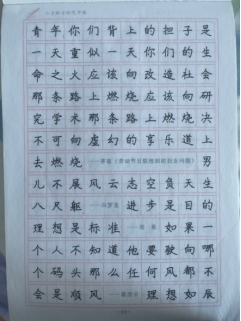 青年你们背上的担子是
一天重似一天你们的生
命之火应该向改造社会
那条路上燃烧应该向研
究学术那条路上燃烧决
不可向虚幻的享乐道上
去燃烧 男
儿不展风云志空负天生
八尺躯 进步是目的
理想是标准 如果一
个人不知道他要驶向哪
个码头那么任何风都不
会是顺风 理想如